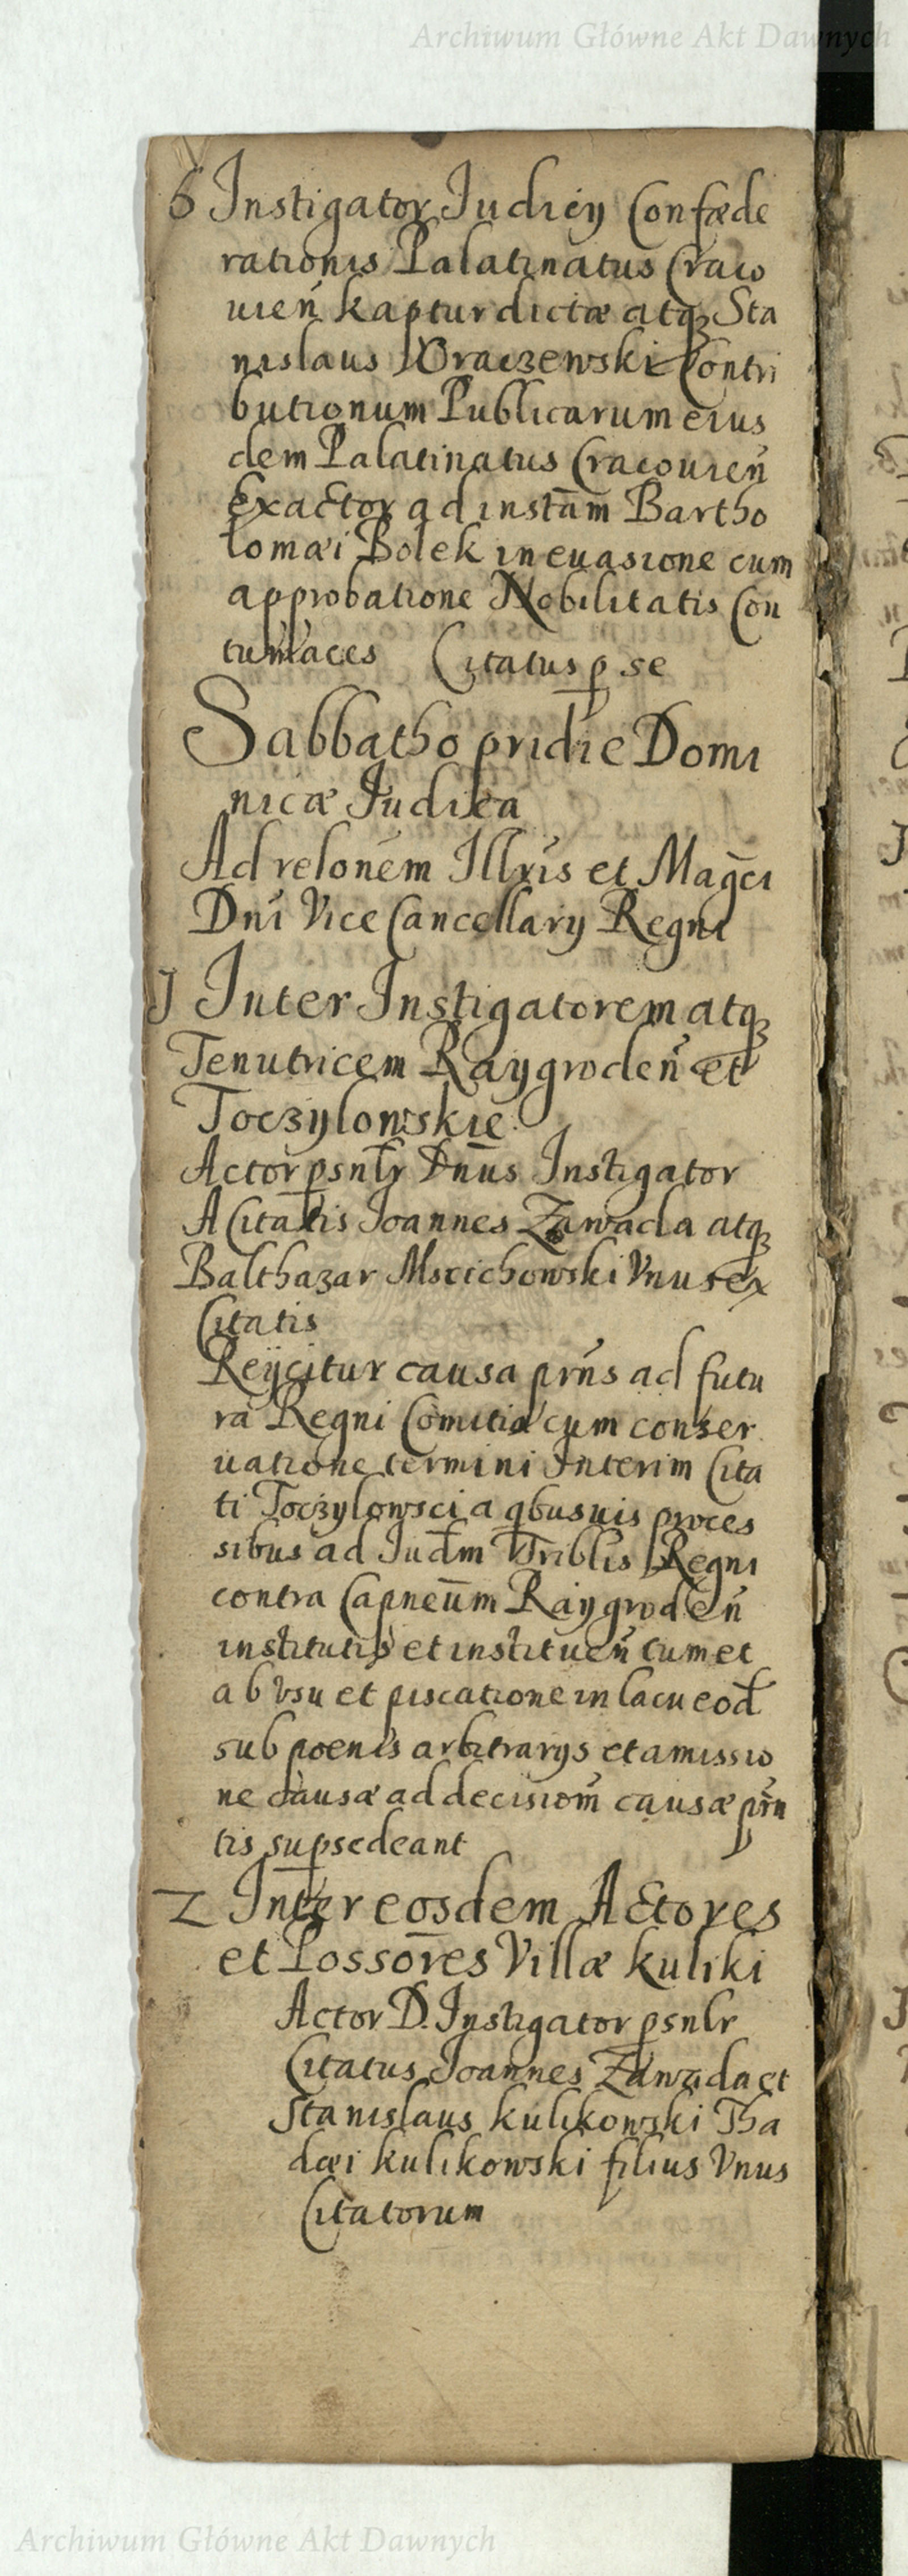 Archiwum Główne Akt Dawnych
6 Instigator Judicij Confæde
rationis Palatinatus Craco
uien̄ kaptur dictæ atq₃ Sta
nislaus Wraczewski Contri
butionum Publicarum eius
dem Palatinatus Cracouien̄
Exactor ad instam̄ Bartho
lomæi Bolek in euasione cum
approbatione Nobilitatis Con
tumaces Citatus p se
Sabbatho pridie Domi
nicæ Judica
Ad relonēm Illris et Magci
Dni Vice Cancellarij Regni
1 Inter Instigatorem atq₃
Tenutricem Raygroden̄ et
Toczylowskie
Actor psnlr Dnus Instigator
A Citatis Joannes Zawada atq₃
Balthazar Mscichowski Vnus ex
Citatis
Reijcitur causa prns ad futu
ra Regni Comitia cum conser
uatione termini Interim Cita
ti Toczylowsci a qbusuis proces
sibus ad Judm Triblis Regni
contra Capneūm Raygroden̄
institutis et instituen̄ tum et
ab vsu et piscatione in lacu eod
sub poenis arbitrarijs et amissio
ne causæ ad decisiom̄ causæ prn
tis supsedeant
2 Inter eosdem Actores
et Possorēs Villæ kuliki
Actor D. Instigator psnlr
Citatus Joannes Zawada et
Stanislaus kulikowski Tha
dæi kulikowski filius Vnus
Citatorum
Archiwum Główne Akt Dawnych